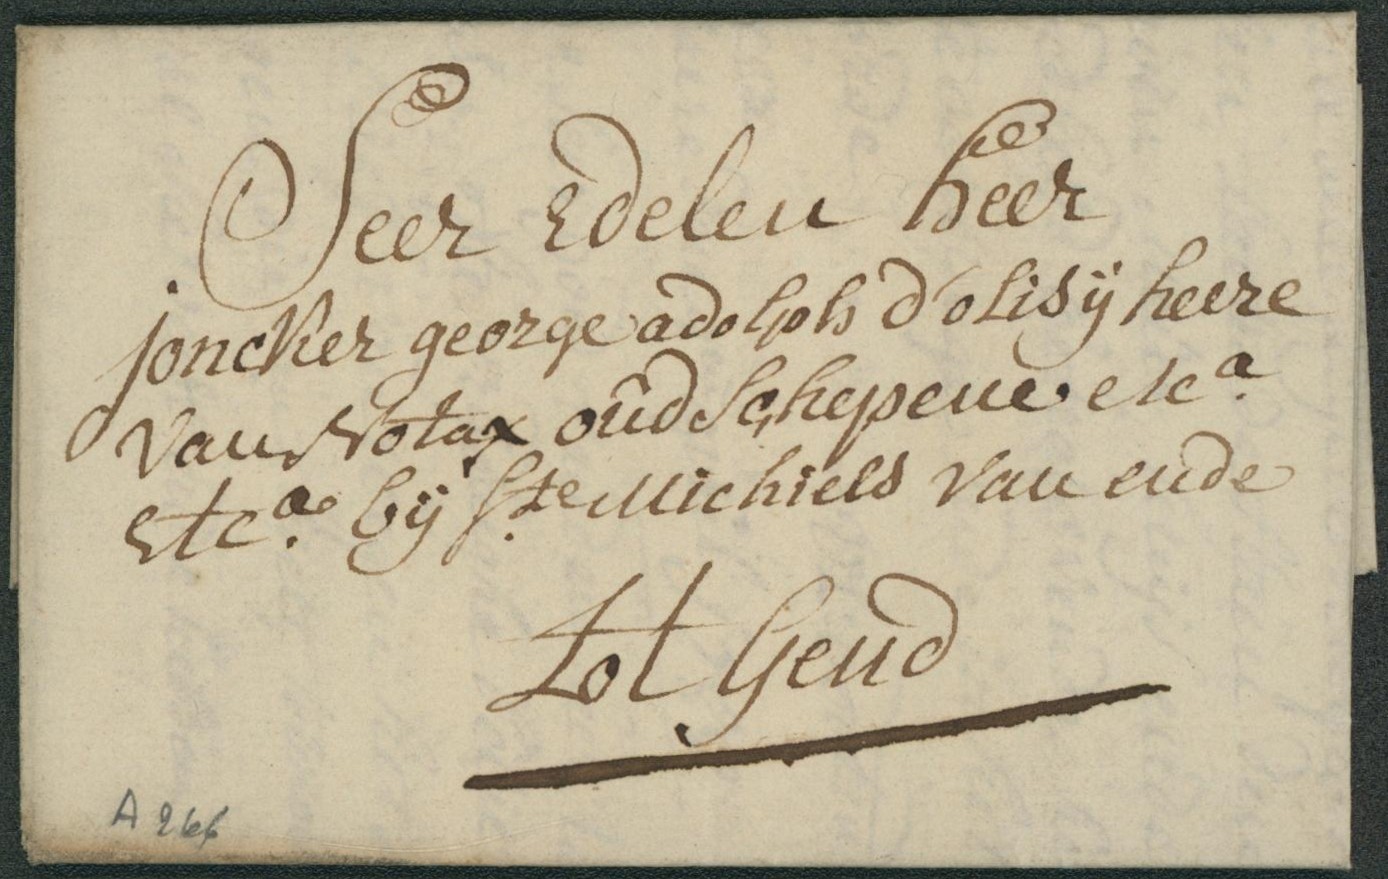 Seer Edelen heer
joncker george adolph d'olisÿ heere
van Notax oud Schepene etc.a
Etc.a bÿ Ste Michiels van ende
Tot Gend
A 266